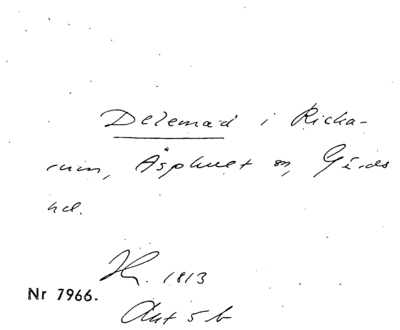 Delemad i Richa-
rum, Äsphult sn, Gärds
hd.
1813
Nr 7966.
Akt 5 b